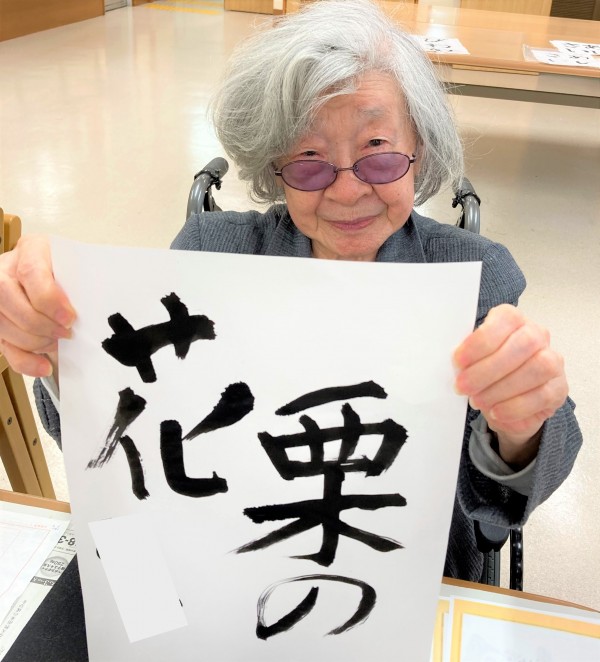 栗の
花